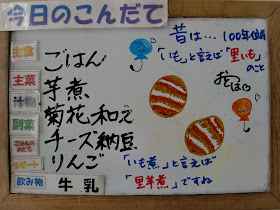 今日のこんだて
主食
ごはん
主菜
芋煮
汁物
副菜
菊花和え
チーズ納豆
ごはんのおとも
デザート
りんご
飲み物
牛乳
昔は… 100年位前
「いも」と言えば「里いも」
のこと
おそばっ
「いも煮」と言えば
「里芋煮」ですね